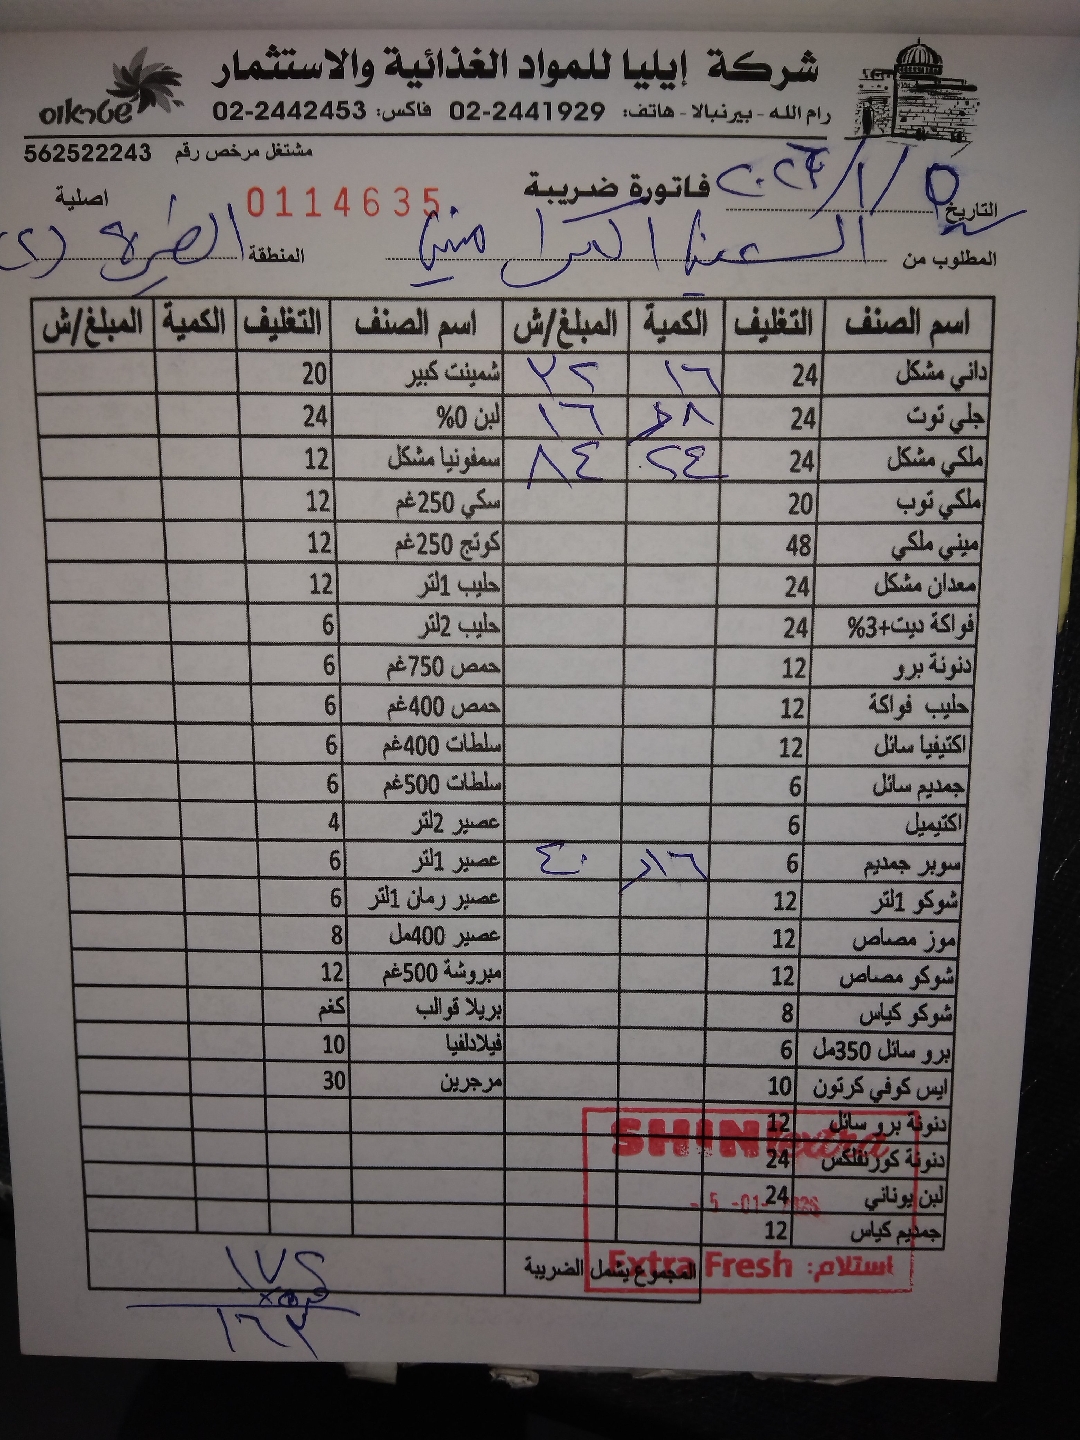 شركة إيليا للمواد الغذائية والاستثمار
رام الله - بيرنبالا - هاتف: 02-2441929 فاكس: 02-2442453
شطراوس
مشتغل مرخص رقم 562522243
التاريخ ٥ / ١ /
فاتورة ضريبة
0114635
اصلية
المطلوب من السعيد
المنطقة الطيرة (٢)
اسم الصنف التغليف الكمية المبلغ/ش اسم الصنف التغليف الكمية المبلغ/ش
داني مشكل 24 ١٦ ٣٢ شمينت كبير 20
جلي توت 24 ٨ ١٦ لبن 0% 24
ملكي مشكل 24 ٢٤ ٨٤ سمفونيا مشكل 12
ملكي توب 20 سكي 250غم 12
ميني ملكي 48 كوتج 250غم 12
معدان مشكل 24 حليب 1لتر 12
فواكة ديت+3% 24 حليب 2لتر 6
دنونة برو 12 حمص 750غم 6
حليب فواكة 12 حمص 400غم 6
اكتيفيا سائل 12 سلطات 400غم 6
جمديم سائل 6 سلطات 500غم 6
اكتيميل 6 عصير 2لتر 4
سوبر جمديم 6 ١٦ ٤٠ عصير 1لتر 6
شوكو 1لتر 12 عصير رمان 1لتر 6
موز مصاص 12 عصير 400مل 8
شوكو مصاص 12 مبروشة 500غم 12
شوكو كياس 8 بريلا قوالب كغم
برو سائل 350مل 6 فيلادلفيا 10
ايس كوفي كرتون 10 مرجرين 30
دنونة برو سائل 12
دنونة كورنفلكس 24
لبن يوناني 24
جمديم كياس 12
SHINI extra
- 5 -01-
استلام: Extra Fresh
المجموع يشمل الضريبة ١٧٢
١٦٣